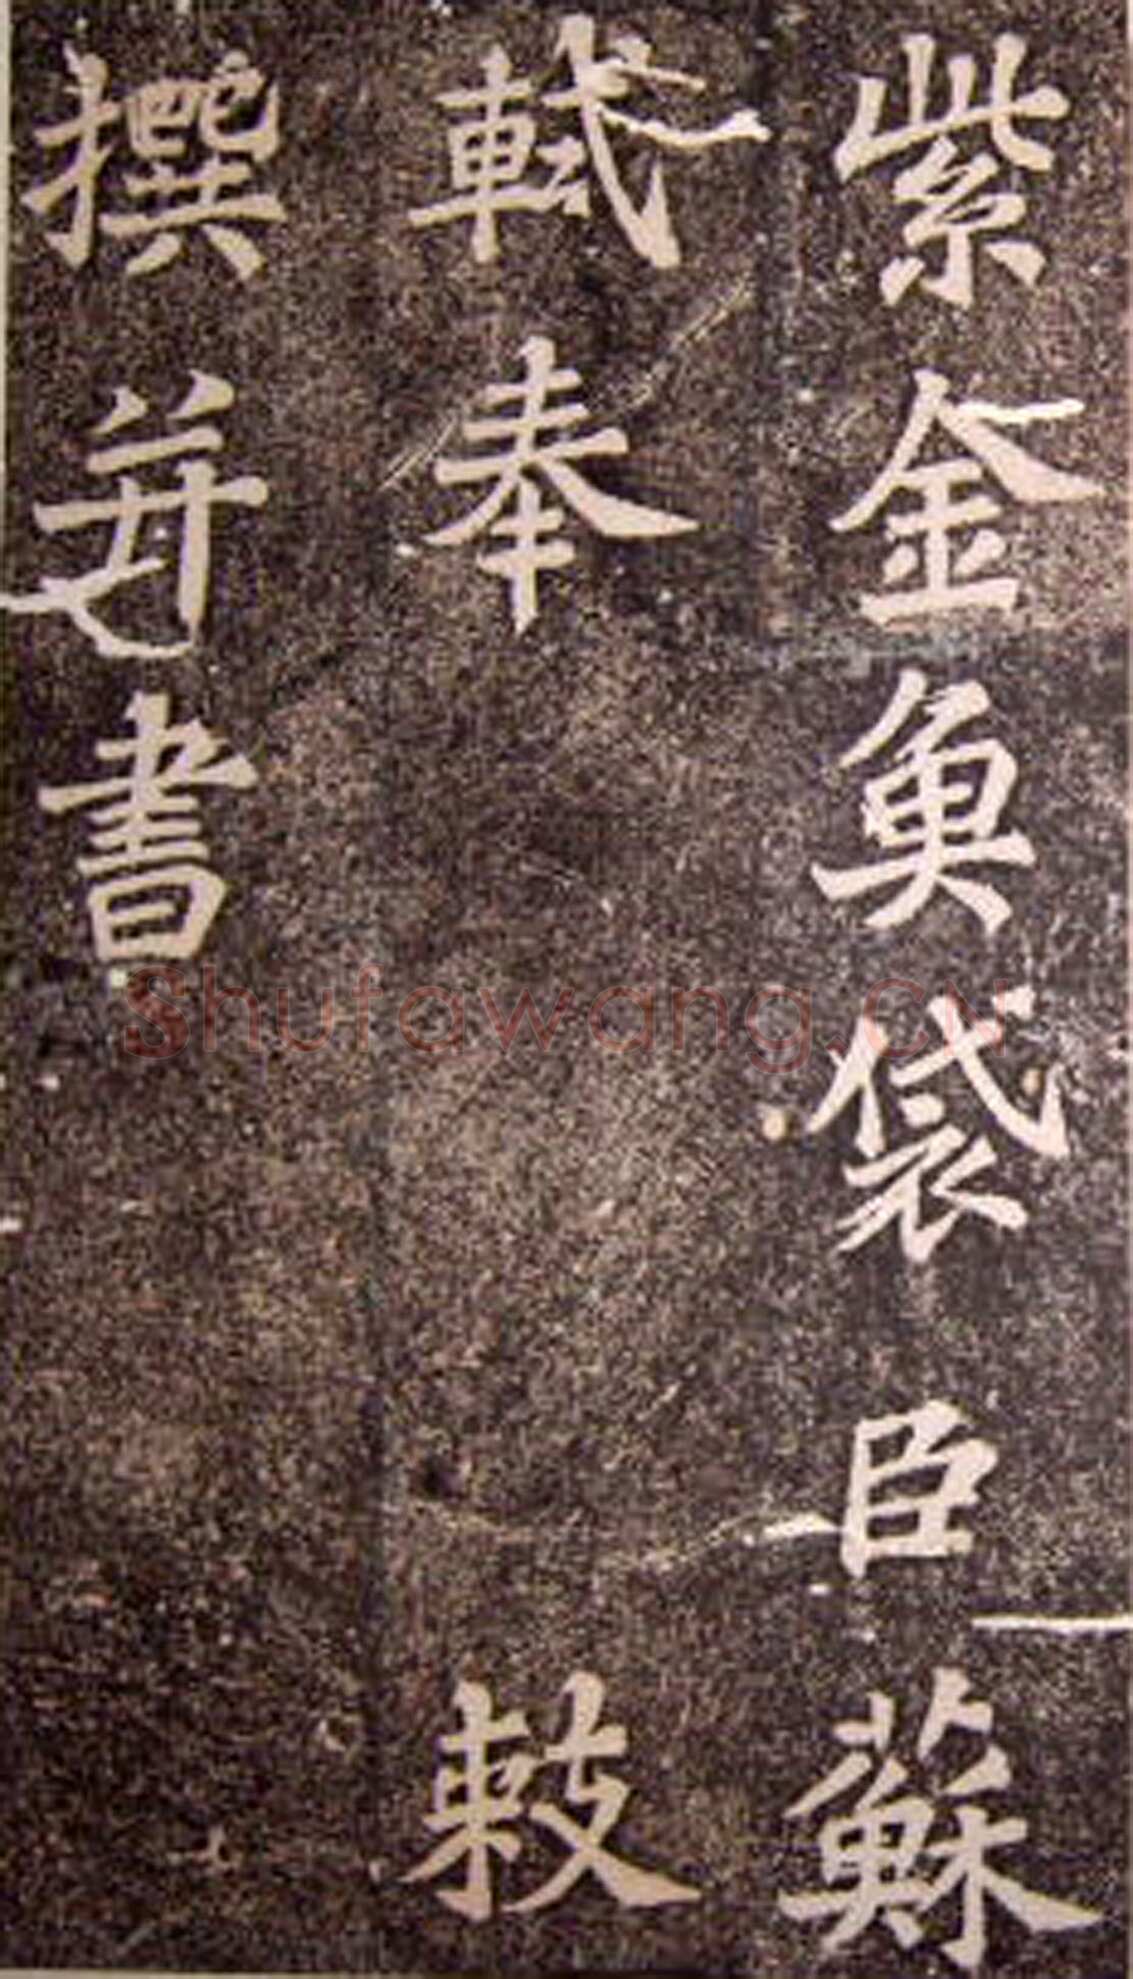 紫金魚袋臣蘇
軾奉敕
撰并書
Shufawang.CN